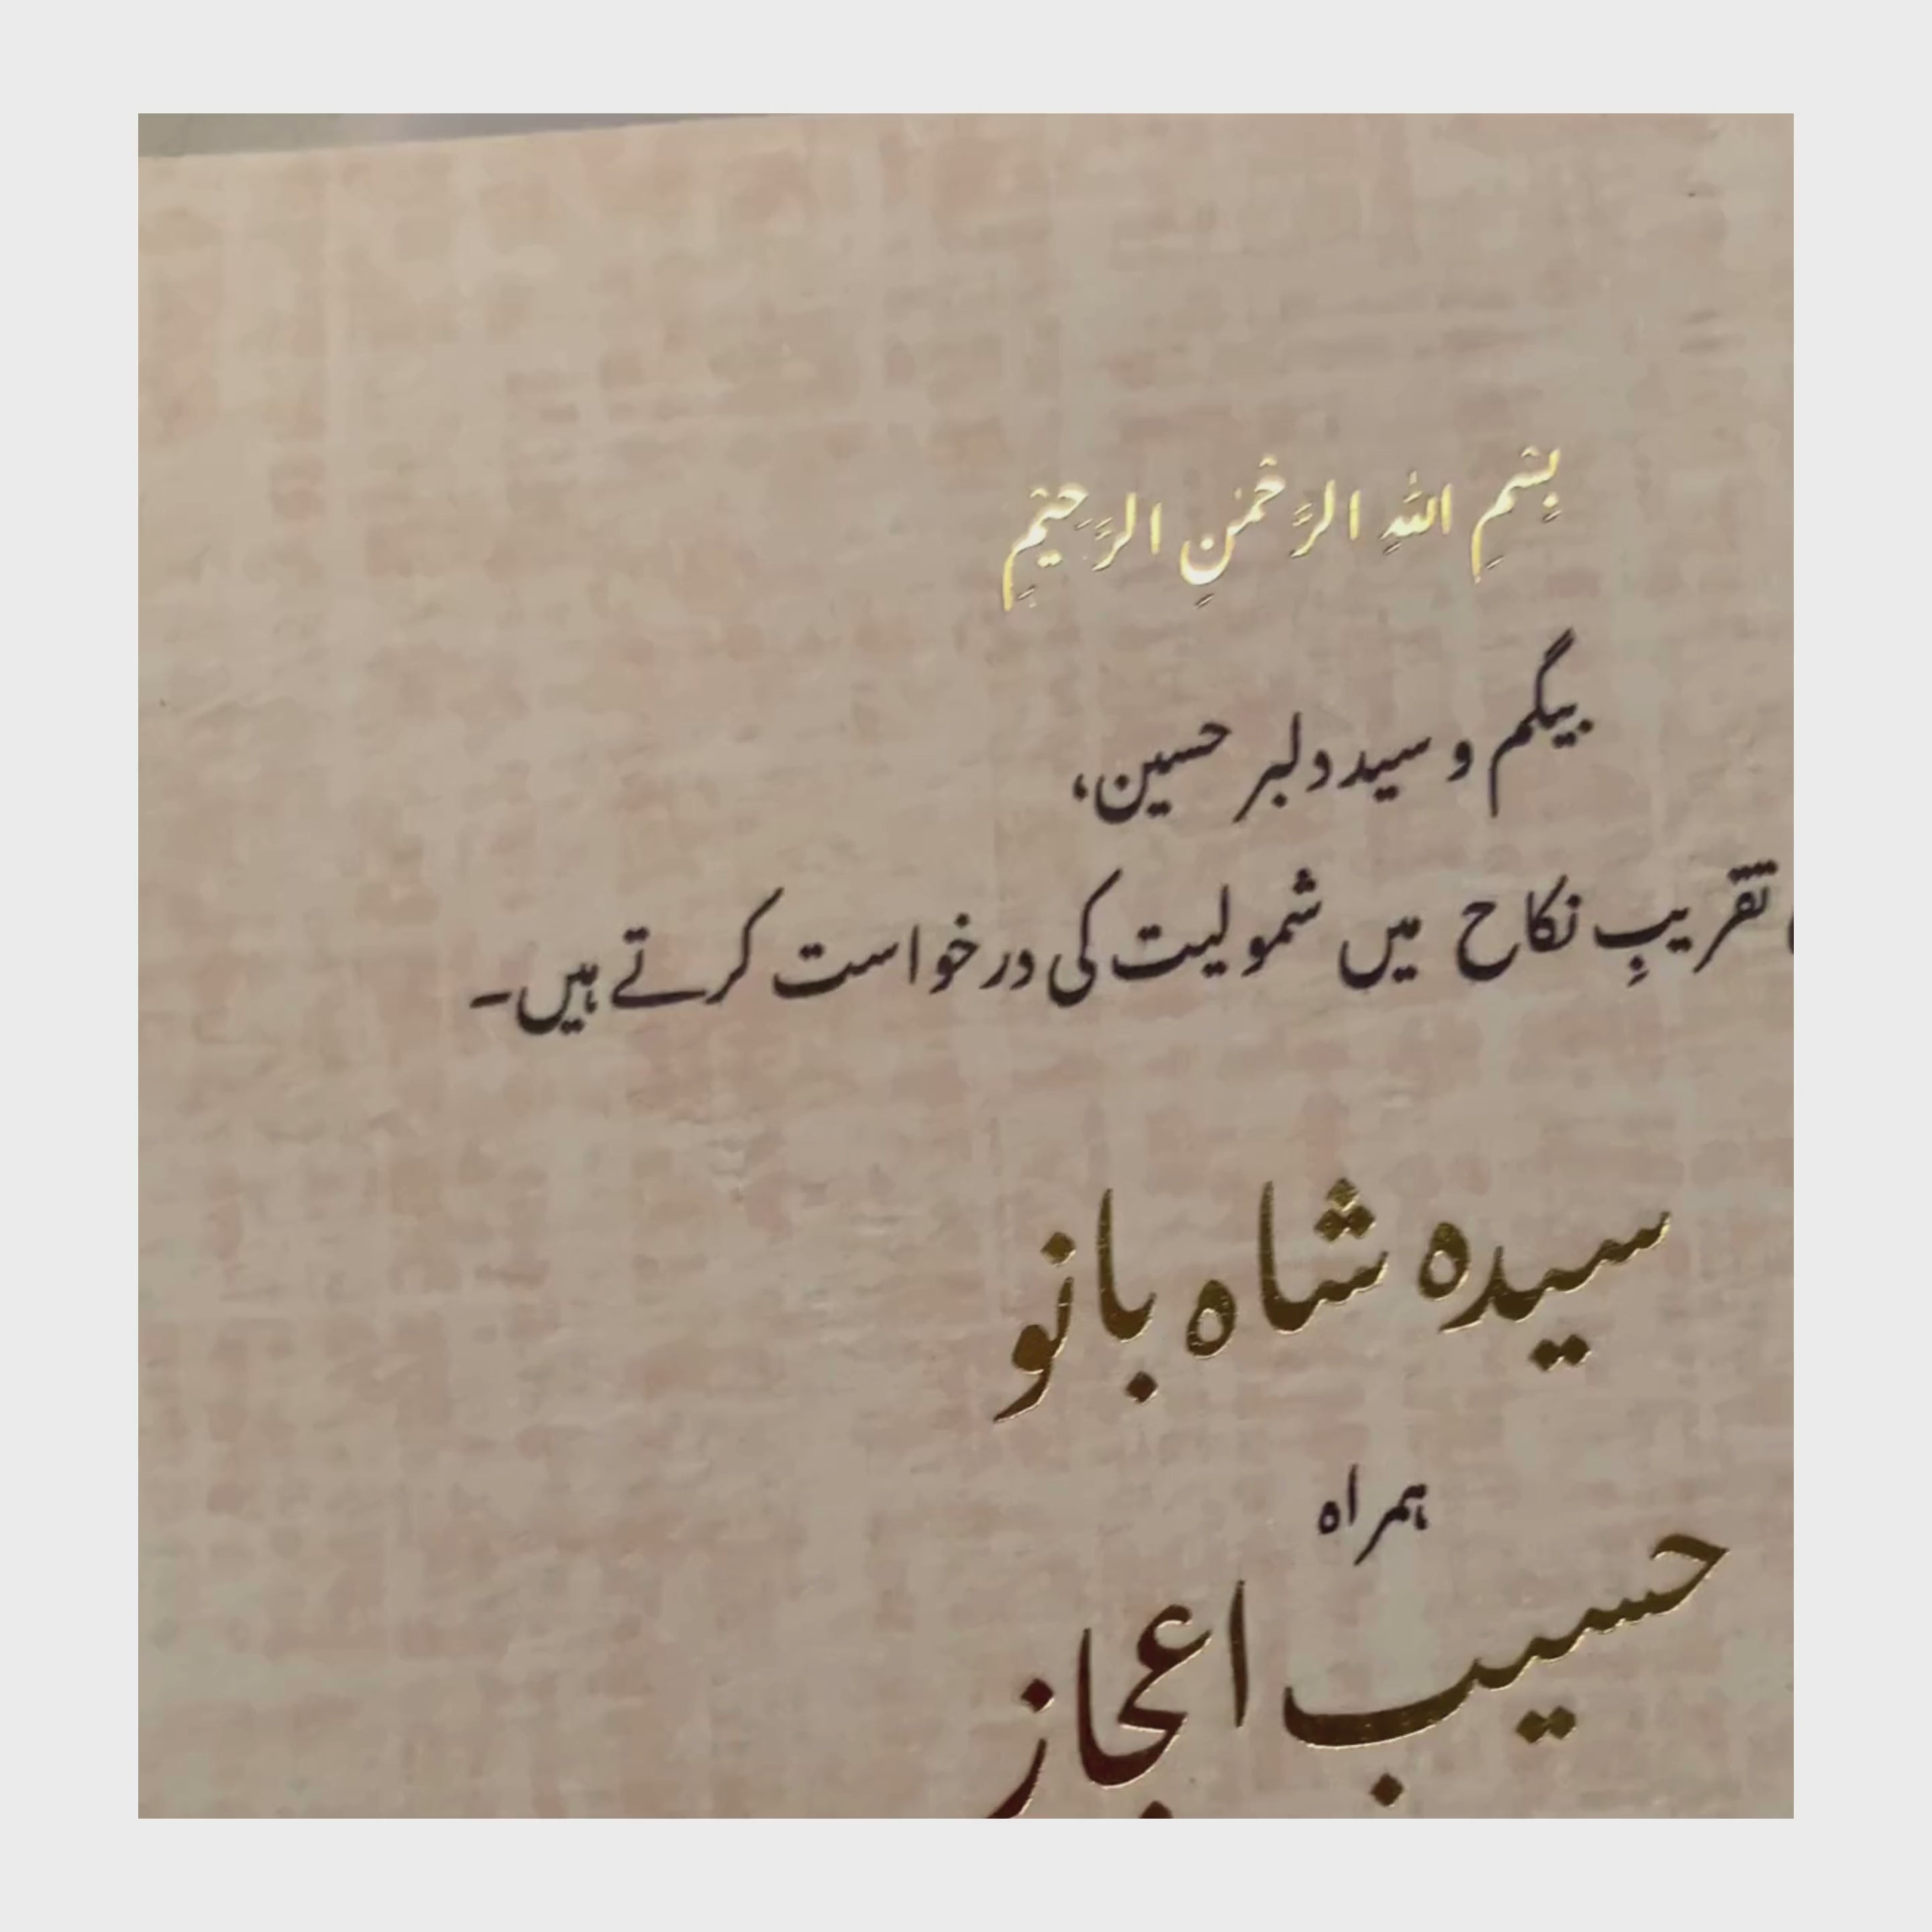 بِسْمِ اللّٰهِ الرَّحْمٰنِ الرَّحِیْمِ
بیگم و سید دلبر حسین،
تقریبِ نکاح میں شمولیت کی درخواست کرتے ہیں۔
سیدہ شاہ بانو
ہمراہ
حسیب اعجاز